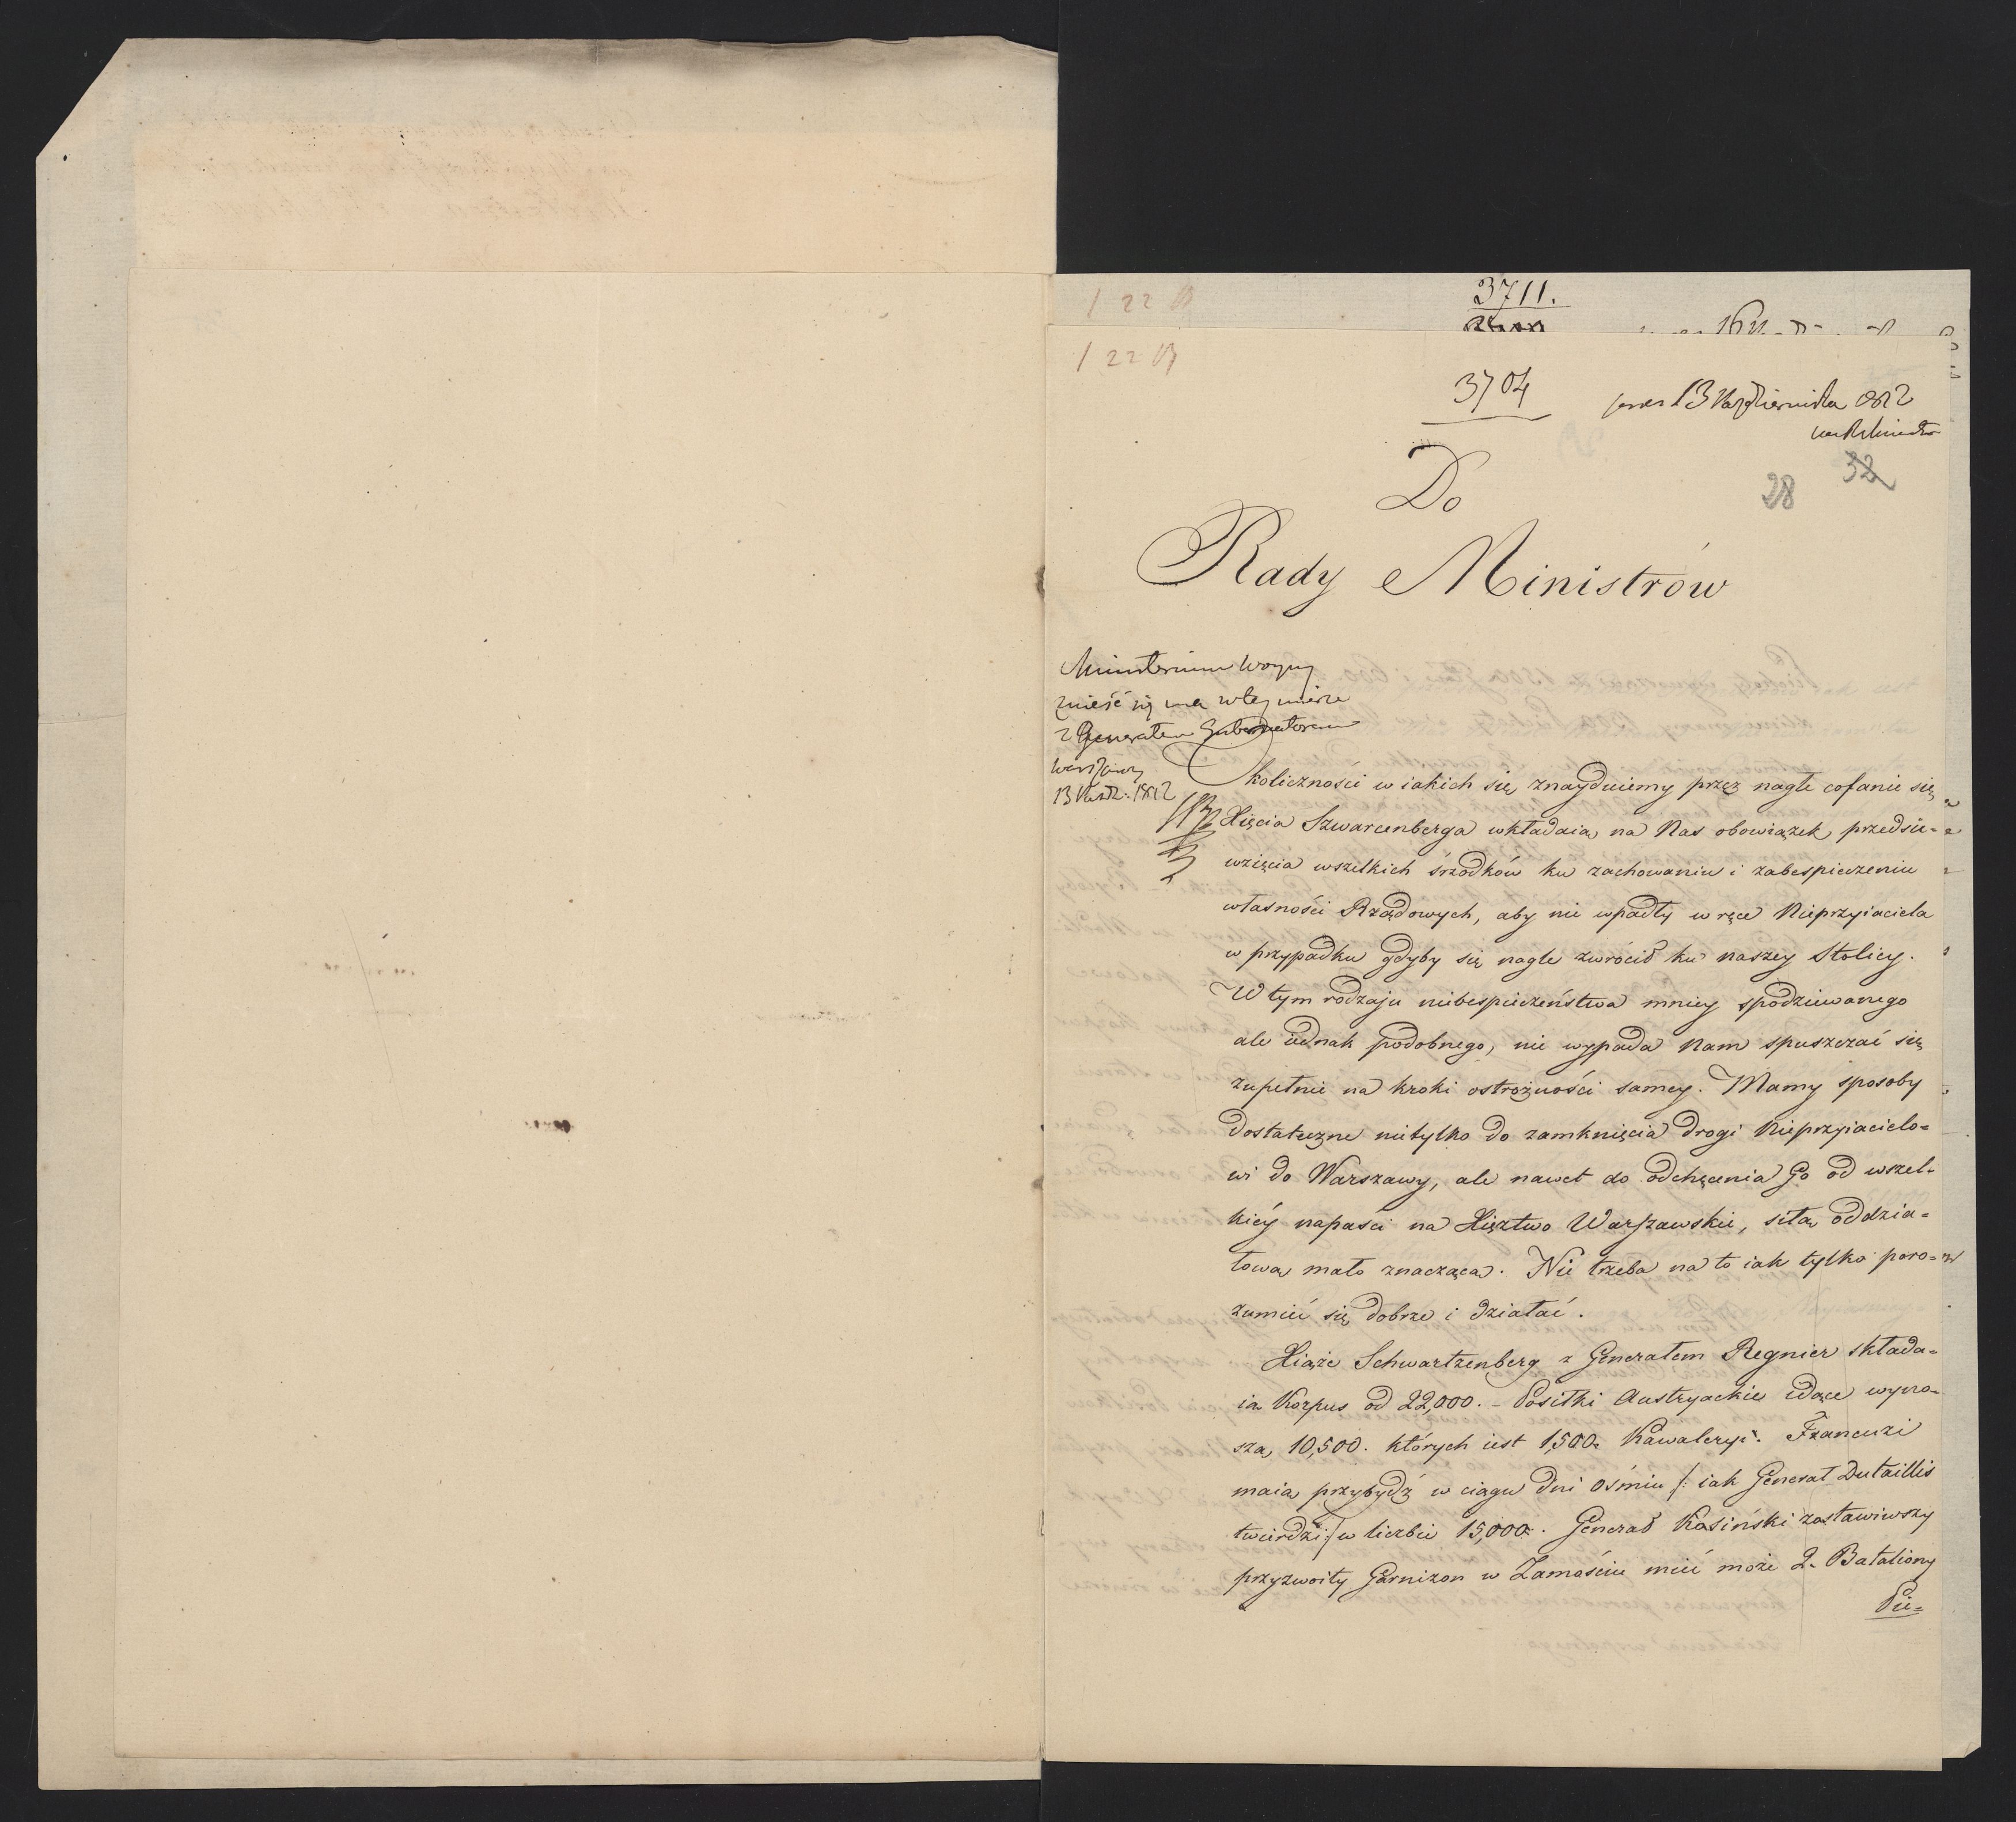 122
3711.
122
3704
13 Października 1812
32
28
Do
Rady Ministrów
Ministerium Woyny
znieść się ma w tey mierze
z Generałem Gubernatorem
Warszawy
13 Paźdz: 1812
Okoliczności w iakich się znayduiemy przez nagłe cofanie się
Xięcia Szwarcenberga wkładaią na Nas obowiązek przedsie=
wzięcia wszelkich śrzodków ku zachowaniu i zabespieczeniu
własności Rządowych, aby nie wpadły w ręce Nieprzyiaciela
w przypadku gdyby się nagle zwrócił ku naszey Stolicy.
W tym rodzaju niebespieczeństwa mniey spodziewanego
ale iednak podobnego, nie wypada Nam spuszczać się
zupełnie na kroki ostrożności samey. Mamy sposoby
dostateczne nietylko do zamknięcia drogi Nieprzyiacielo=
wi do Warszawy, ale nawet do odchęcenia Go od wszel=
kiéy napaści na Xięztwo Warszawskie, siłą oddzia=
łową mało znaczącą. Nie trzeba na to iak tylko poro=
zumieć się dobrze i działać.
Xiąże Schwartzenberg z Generałem Regnier składa=
ią Korpus od 22,000. - Posiłki Austryackie idące wyno=
szą 10,500. których iest 1,500. Kawaleryi. Francuzi
maią przybydź w ciągu dni ośmiu /: iak Generał Dutaillis
twierdzi :/ w liczbie 15,000. Generał Kosiński zostawiwszy
przyzwoity Garnizon w Zamościu mieć może 2. Bataliony
Pie=